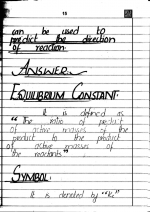 15
can be used to
predict the direction
of reaction.
ANSWER
EQUILIBRIUM CONSTANT:
It is defined as
"The ratio of product
of active masses of the
product to the product
of active masses of
the reactants"
SYMBOL:
It is denoted by "Kc"